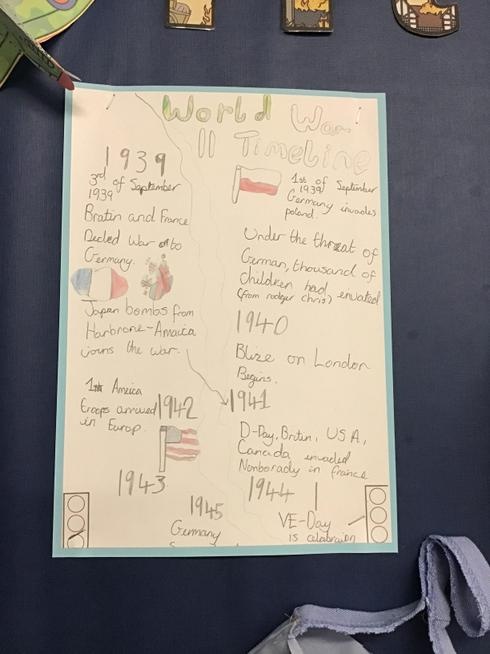 World War
II Timeline
1939
3rd of September
1939
Bratin and France
Decled War
Germany.
Japan bombs from
Harbrone-Amaica
joins the war.
1st Ameica
troops arrived
in Europ.
1942
1943
1945
Germany
1st of September
1939
Germany invades
poland.
Under the threat of
German, thousand of
children had
(from chris)
1940
Blize on London
Begins.
1941
D-Day, Britin, USA,
Canada envaded
Nonborady in france
1944
VE-Day
is